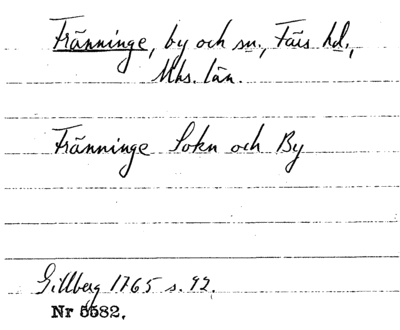 Fränninge, by och sn., Färs hd.,
Mhs. län.
Fränninge Sokn och By
Gillberg 1765 s. 92.
Nr 5582.